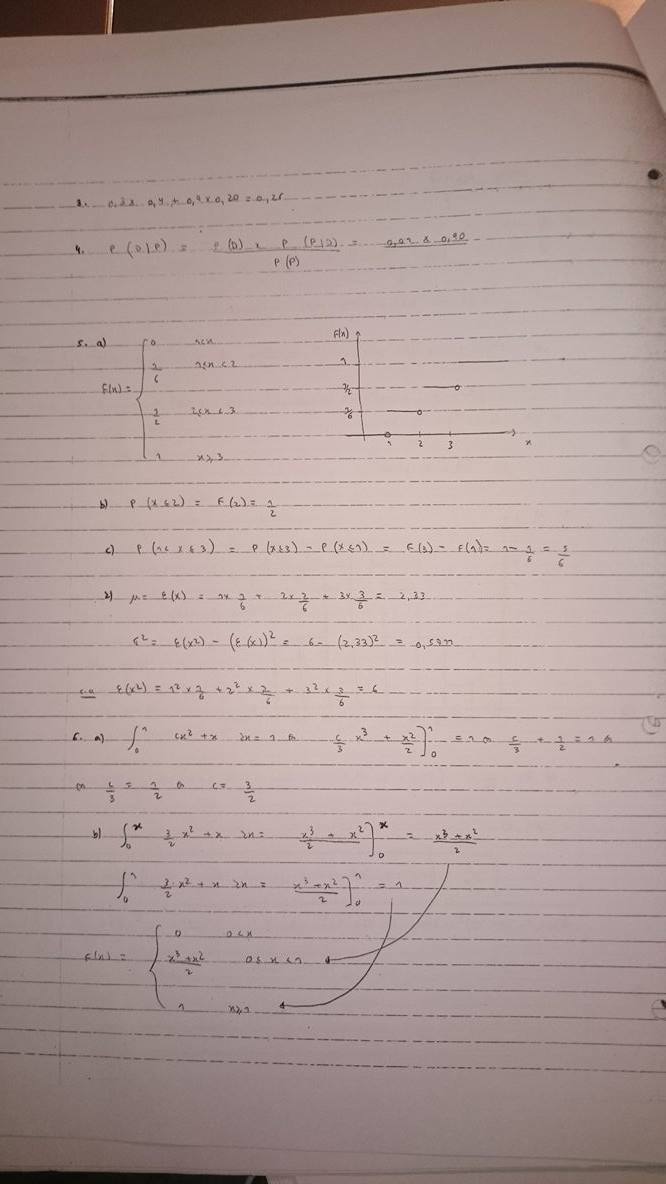 3. 0,3 x 0,4 + 0,4 x 0,20 = 0,2
4. P (D|P) = P(D) x P (P|D) / P(P) = 0,02 x 0,90
5. a) F(x) = { 0 x<1
1/6 1≤x<2
1/2 2≤x<3
1 x≥3
F(x) 1 1/2 1/6 1 2 3 x
b) P (x≤2) = F(2) = 1/2
c) P (1< x ≤3) = P(x≤3) - P(x≤1) = F(3) - F(1) = 1 - 1/6 = 5/6
d) μ = E(x) = 1x 1/6 + 2x 2/6 + 3x 3/6 = 2,33
σ² = E(x²) - (E(x))² = 6 - (2,33)² = 0,5711
c.a E(x²) = 1² x 1/6 + 2² x 2/6 + 3² x 3/6 = 6
6. a) ∫₀¹ cx² + x dx = 1 ⇔ c/3 x³ + x²/2 ]₀¹ = 1 ⇔ c/3 + 1/2 = 1 ⇔
⇔ c/3 = 1/2 ⇔ c = 3/2
b) ∫₀ˣ 3/2 x² + x dx = x³ + x² / 2 ]₀ˣ = x³ + x² / 2
∫₀¹ 3/2 x² + x dx = x³ + x² / 2 ]₀¹ = 1
F(x) = { 0 0<x
x³+x² / 2 0≤x<1
1 x≥1